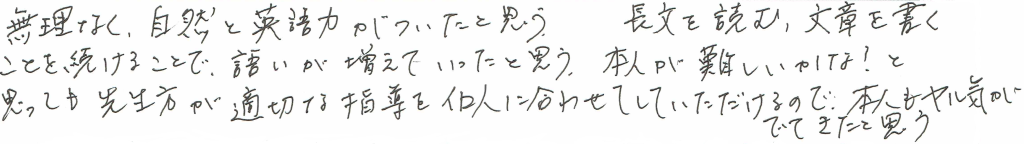 無理なく、自然と英語力がついたと思う 長文を読む、文章を書く
ことを続けることで、語いが増えていったと思う。本人が難しいかな!と
思っても先生方が適切な指導を個人に合わせてしていただけるので、本人もヤル気が
でてきたと思う